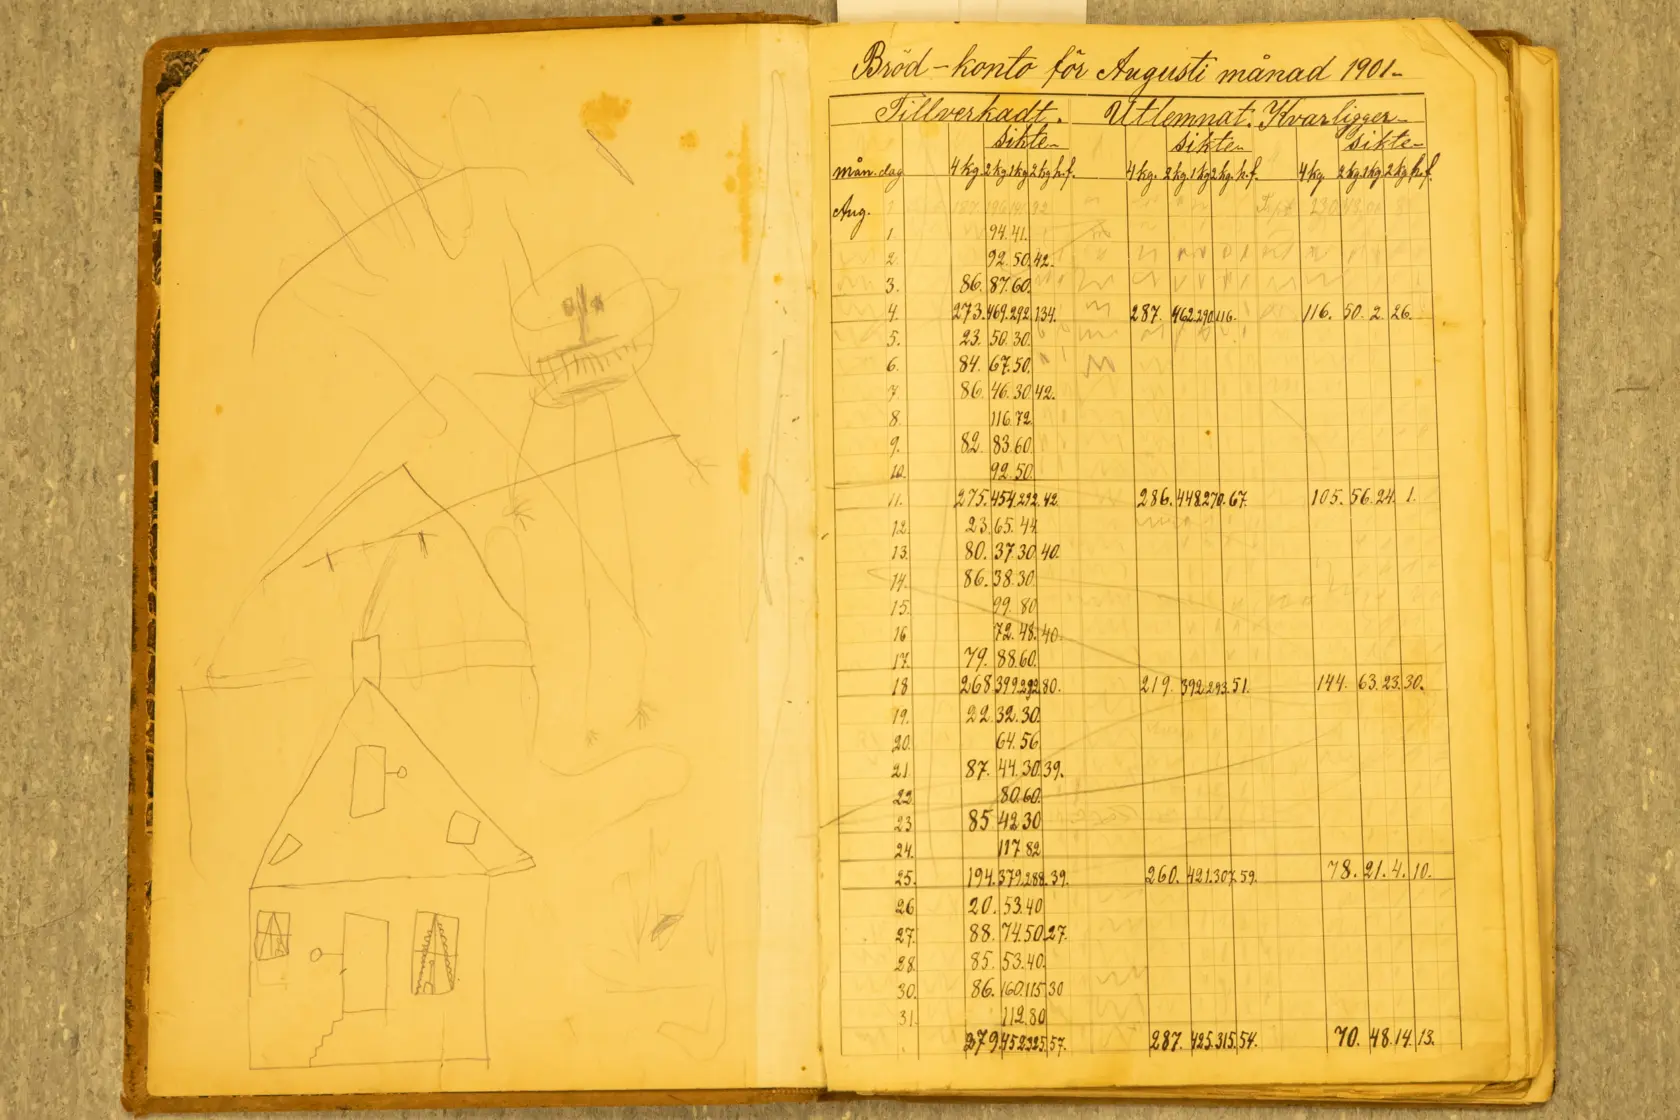 Bröd-konto för Augusti månad 1901.
Tillverkadt. Utlemnat. Kvarligger
sikte sikte sikte
mån. dag 4 kg. 2 kg. 1 kg. 2 kg. h.f. 4 kg. 2 kg. 1 kg. 2 kg. h.f. 4 kg. 2 kg. 1 kg. 2 kg. h.f.
Aug.
1 94. 41.
2. 92. 50. 42.
3. 86. 87. 60.
4. 273. 469. 292. 134. 287. 462. 290. 116. 116. 50. 2. 26.
5. 23. 50. 30.
6. 84. 67. 50.
7 86. 46. 30. 42.
8. 116. 72.
9. 82. 83. 60.
10. 92. 50.
11. 275. 454. 292. 42. 286. 448. 270. 67. 105. 56. 24. 1.
12. 23. 65. 44.
13. 80. 37. 30. 40.
14. 86. 38. 30.
15. 99. 80.
16 72. 48. 40.
17. 79. 88. 60.
18 268. 399. 292. 80. 219. 392. 293. 51. 144. 63. 23. 30.
19. 22. 32. 30.
20. 64. 56.
21 87. 44. 30. 39.
22. 80. 60.
23 85 42. 30
24. 117. 82
25. 194. 379. 288. 39. 260. 421. 307. 59. 78. 21. 4. 10.
26 20. 53. 40
27. 88. 74. 50. 27.
28. 85. 53. 40.
30. 86. 160. 115. 30
31. 112. 80
279 452 325. 57. 287. 425. 315. 54. 70. 48. 14. 13.